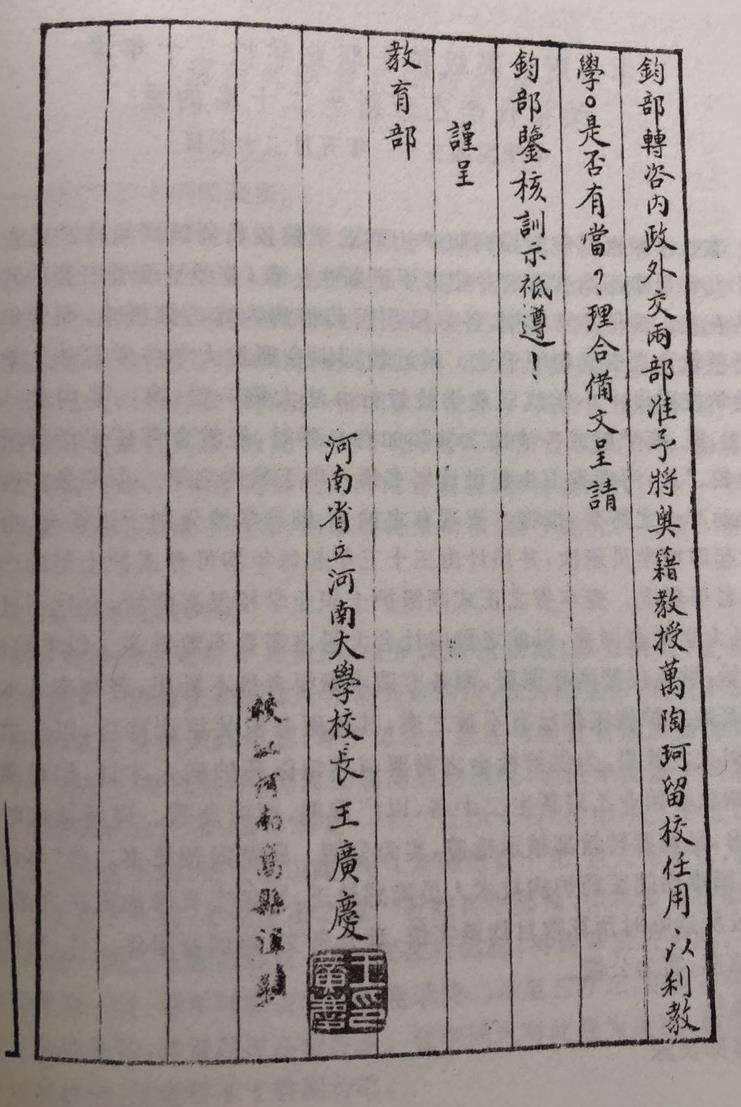 鈞部轉咨內政外交兩部准予將奧籍教授萬陶珂留校任用、以利教
學。是否有當？理合備文呈請
鈞部鑒核訓示祗遵！
謹呈
教育部
河南省立河南大學校長王廣慶
河南嵩縣潭
王廣慶印